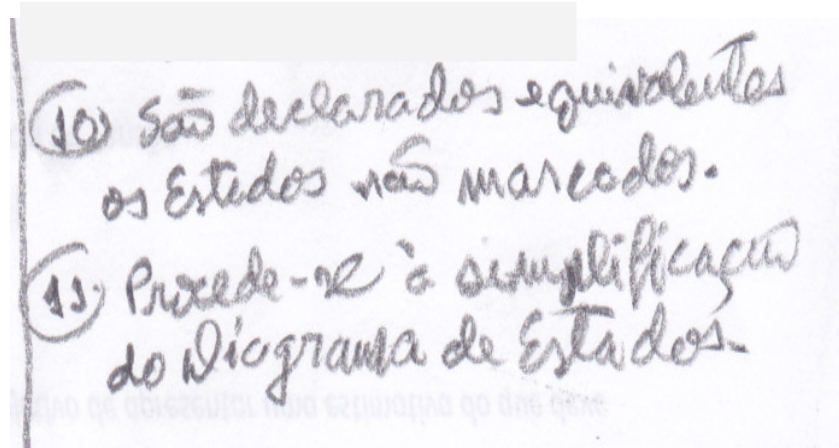 10) São declarados equivalentes
os Estados não marcados.
11) Procede-se à simplificação
do Diagrama de Estados.